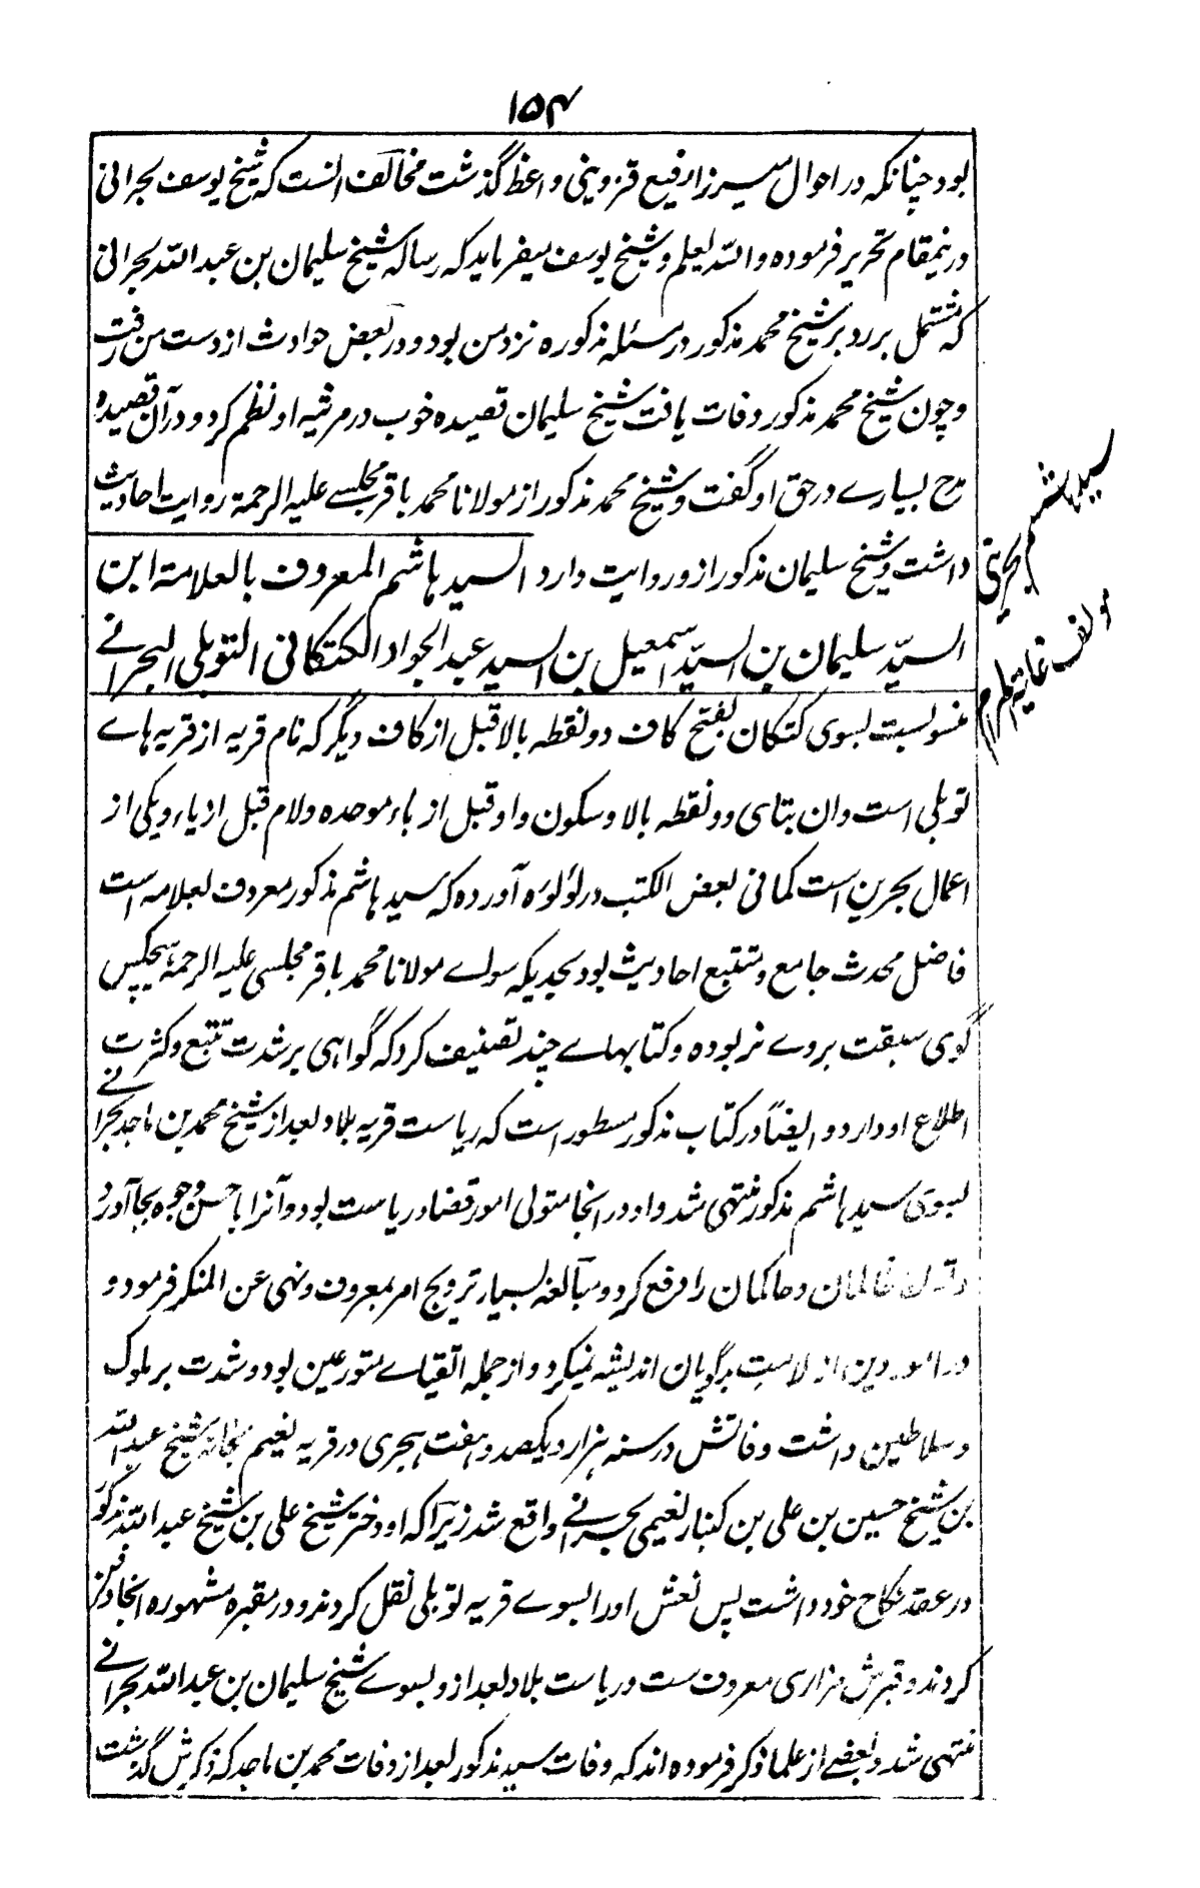 ۱۵۴
بود چنانکه در احوال میرزا رفیع قزوینی واعظ گذشت مخالف انست که شیخ یوسف بحرانی
درینمقام تحریر فرموده والله یعلم و شیخ یوسف میفرماید که رساله شیخ سلیمان بن عبدالله بحرانی
که مشتمل بر رد بر شیخ محمد مذکور در مسئله مذکوره نزد من بود و در بعض حوادث از دست من رفت
و چون شیخ محمد مذکور وفات یافت شیخ سلیمان قصیده خوب در مرثیه او نظم کرد و در آن قصیده
مدح بسیارے در حق او گفت و شیخ محمد مذکور از مولانا محمد باقر مجلسے علیه الرحمة روایت احادیث
داشت و شیخ سلیمان مذکور ازو روایت دارد السید هاشم المعروف بالعلامة ابن
السیّد سلیمان بن السیّد اسمعیل بن السید عبد الجواد الکتکانی التوبلی البحرانے
سید هاشم بحرینی
مولف غایة المرام
منسوبست بسوی کتکان بفتح کاف دو نقطه بالا قبل از کاف دیگر که نام قریه از قریه هاے
توبلی است وان بتای دو نقطه بالا و سکون واو قبل از باء موحده و لام قبل از یاء و یکی از
اعمال بحرین است کما فی بعض الکتب در لؤلؤه آورده که سید هاشم مذکور معروف بعلامه است
فاضل محدث جامع و متتبع احادیث بود بحدیکه سواے مولانا محمد باقر مجلسی علیه الرحمة هیچکس
گوی سبقت بر وے نربوده و کتابهاے چند تصنیف کرد که گواهی بر شدت تتبع و کثرت
اطلاع او دارد و ایضاً در کتاب مذکور مسطور است که ریاست قریه بلاد بعد از شیخ محمد بن ماجد بحرانے
بسوی سید هاشم مذکور منتهی شد و او در انجا متولی امور قضا و ریاست بود و آنرا باحسن وجوه بجا آورد و
ظالمان و حاکمان را رفع کرد و مبالغه بسیار ترویج امر بمعروف و نهی عن المنکر فرمود و
در امور دین از ملامت بدگویان اندیشه نمیکرد و از جمله اتقیاے متورعین بود و شدت بر ملوک
و سلاطین داشت وفاتش در سنه هزار و یکصد و هفت هجری در قریه نعیم بخانه شیخ عبد الله
بن شیخ حسین بن علی بن کنبار نعیمی بحرانے واقع شد زیرا که او دختر شیخ علی بن شیخ عبد الله مذکور
در عقد نکاح خود داشت پس نعش او را بسوے قریه توبلی نقل کردند و در مقبره مشهوره انجا دفن
کردند و قبرش مزاری معروف ست و ریاست بلاد بعد ازو بسوے شیخ سلیمان بن عبدالله بحرانے
منتهی شد و بعضے از علما ذکر فرموده اند که وفات سید مذکور بعد از وفات محمد بن ماجد که ذکرش گذشت